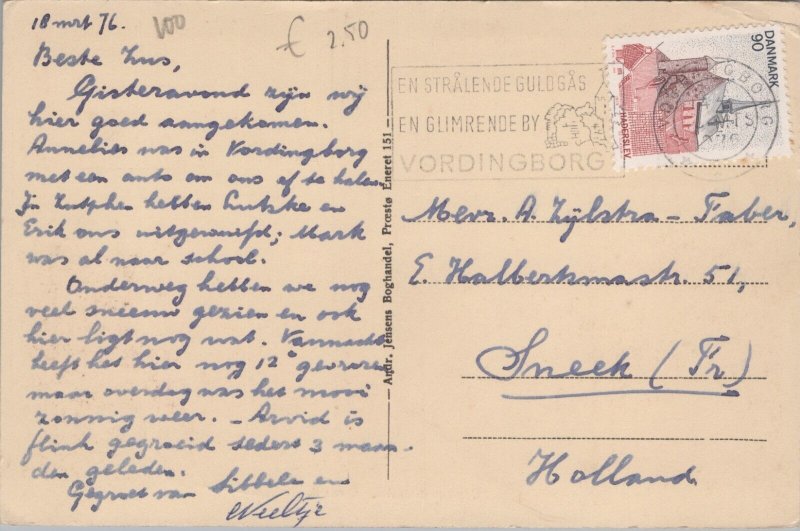 18 mrt 76.
100
€ 2.50
Beste Zus,
Gisteravond zijn wij
hier goed aangekomen.
Annelies was in Vordingborg
met een auto om ons af te halen
In Zutphen hebben Lutske en
Erik ons uitgewuifd; Mark
was al naar school.
Onderweg hebben we nog
veel sneeuw gezien en ook
hier ligt nog wat. Vannacht
heeft het hier nog 12° gevroren
maar overdag was het mooi
zonnig weer. - Arvid is
flink gegroeid sedert 3 maan-
den geleden.
Gegroet van Sibbele en
Neeltje
Andr. Jensens Boghandel, Præstø Eneret 151
EN STRÅLENDE GULDGÅS
EN GLIMRENDE BY
VORDINGBORG
DANMARK
90
HADERSLEV
Mevr. A. Zijlstra - Faber,
E. Halbertsmastr. 51,
Sneek (Fr)
Holland